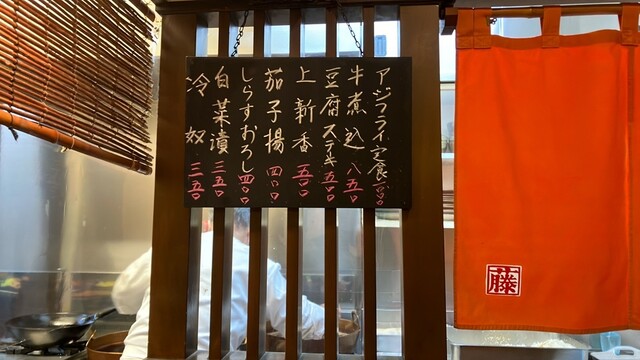 アジフライ定食一一〇〇
牛煮込 八五〇
豆腐ステーキ 五五〇
上新香 五五〇
茄子揚 四〇〇
しらすおろし 四〇〇
白菜漬 三五〇
冷奴 三五〇
藤